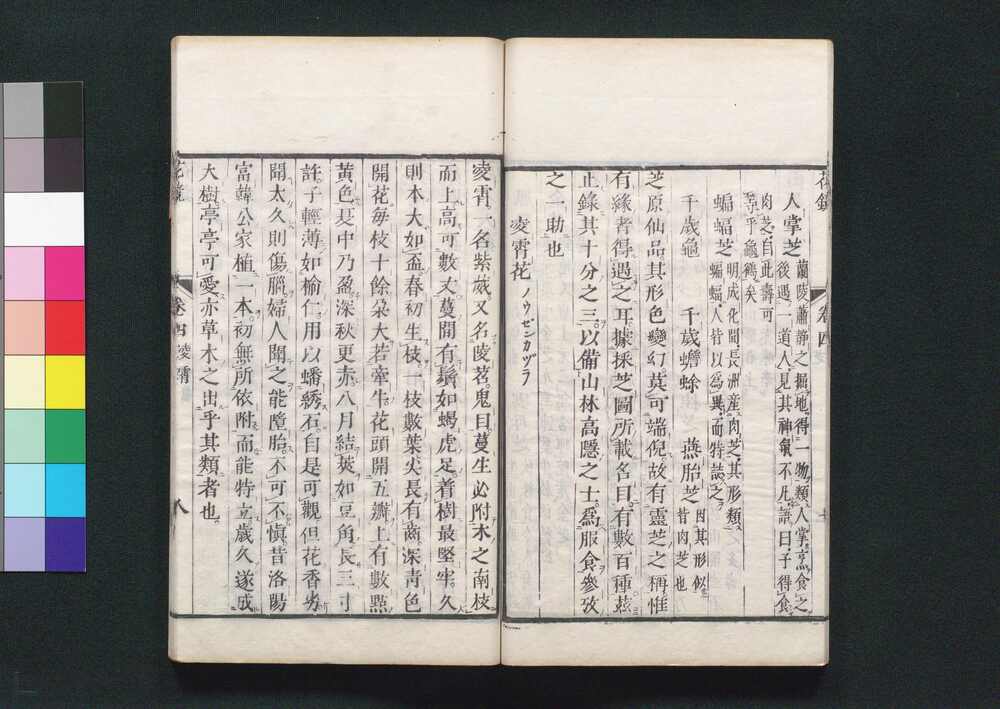 花鏡
卷四
人掌芝
蘭陵蕭靜之掘地得一物類人掌烹食之
後遇一道人見其神氣不凡語曰子得食
肉芝自此壽可
等乎龜鶴矣
蝙蝠芝
明成化間長洲産肉芝其形類
蝙蝠人皆以爲異而特誌之
千歲龜 千歲蟾蜍 燕胎芝
因其形似
皆肉芝也
芝原仙品其形色變幻莫可端倪故有靈芝之稱惟
有緣者得遇之耳據採芝圖所載名目有數百種茲
止錄其十分之三以備山林高隱之士爲服食參攷
之一助也
凌霄花 ノウゼンカヅラ
凌霄一名紫葳又名陵苕鬼目蔓生必附木之南枝
而上高可數丈蔓間有鬚如蝎虎足着樹最堅牢久
則本大如盃春初生枝一枝數葉尖長有齒深青色
開花每枝十餘朵大若牽牛花頭開五瓣上有數點
黃色夏中乃盈深秋更赤八月結莢如豆角長三寸
許子輕薄如榆仁用以蟠綉石自是可觀但花香劣
聞太久則傷腦婦人聞之能墮胎不可不慎昔洛陽
富韓公家植一本初無所依附而能特立歲久遂成
大樹亭亭可愛亦草木之出乎其類者也
花鏡
卷四 凌霄
八